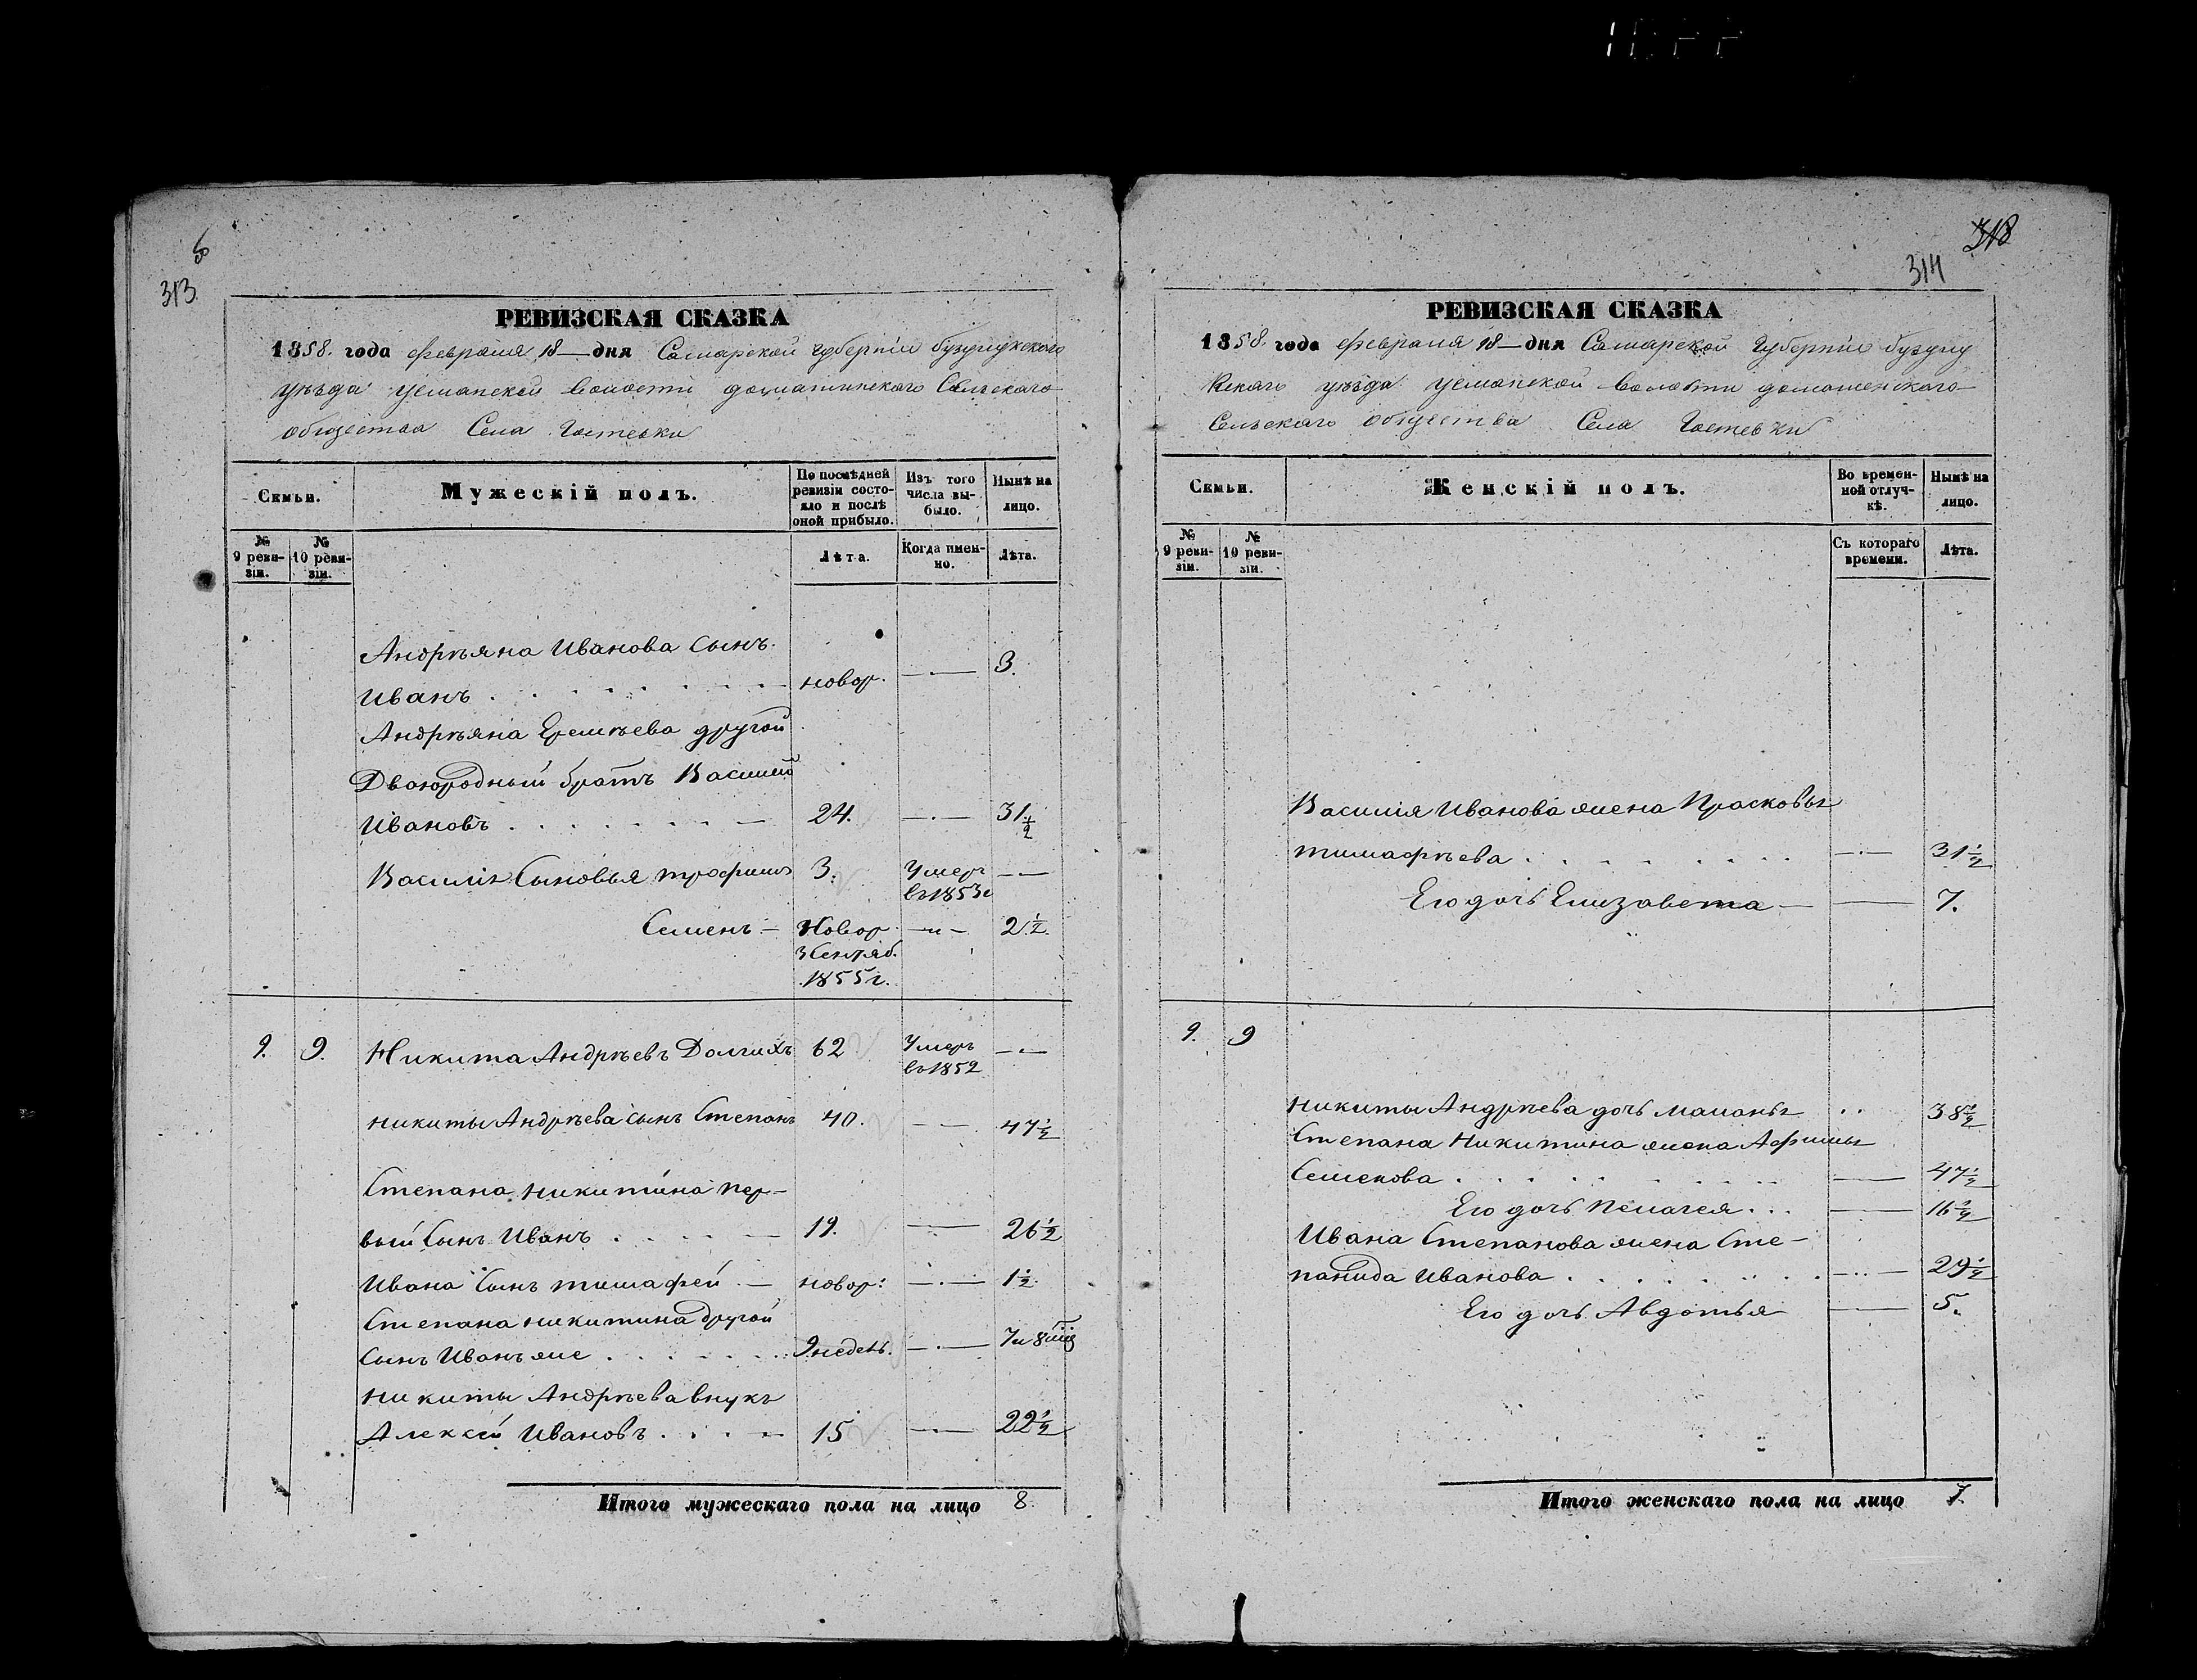 6
313
РЕВИЗСКАЯ СКАЗКА
1858. года февраля 18 — дня Самарской губерніи бузулукского
уѣзда усманской волости домашинскаго Сельскаго
общества Села Гостевки
Семьи.
Мужескій полъ.
По послѣдней ревизіи состояло и послѣ оной прибыло.
Изъ того числа выбыло.
Нынѣ на лицо.
№ 9 ревизіи.
№ 10 ревизіи.
Лѣта.
Когда именно.
Лѣта.
Андрѣяна Иванова Сынъ
Иванъ новор. 3.
Андрѣяна Еремѣева другой
Двоюродный братъ Василий
Ивановъ 24. 31 1/2
Василія Сыновья трофимъ 3. Умеръ въ 1853 г
Семенъ — Новор. 3 Сентяб. 1855 г. 2 1/2
9. 9. Никита Андрѣевъ Долгихъ 62 Умеръ въ 1852
никиты Андрѣева Сынъ Степанъ 40. 47 1/2
Степана никитина пер-
вый Сынъ Иванъ 19. 26 1/2
Ивана Сынъ тимафей новор: 1 1/2
Степана никитина другой
Сынъ Иванъ же 9 недель. 7 и 8
Никиты Андрѣева внукъ
Алексѣй Ивановъ 15 22 1/2
Итого мужескаго пола на лицо 8.
318
314
РЕВИЗСКАЯ СКАЗКА
1858. года февраля 18 — дня Самарской губерніи бузулу
кскаго уѣзда усманской волости домашенскаго
Сельскаго общества Села Гостевки
Семьи.
Женскій полъ.
Во временной отлучкѣ.
Нынѣ на лицо.
№ 9 ревизіи.
№ 10 ревизіи.
Съ котораго времени.
Лѣта.
Василія Иванова жена Прасковья
тимафѣева 31 1/2
Его дочь Елизавета 7.
9. 9
никиты Андрѣева дочь маланья 38 1/2
Степана Никитина жена Афимья
Семенова 47 1/2
Его дочь Пелагея 16 1/2
Ивана Степанова жена Сте-
панида Иванова 29 1/2
Его дочь Авдотья 5.
Итого женскаго пола на лицо 7.